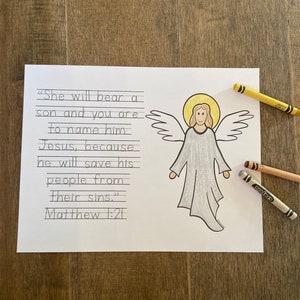 "She will bear a
son and you are
to name him
Jesus, because
he will save his
people from
their sins."
Matthew 1:21